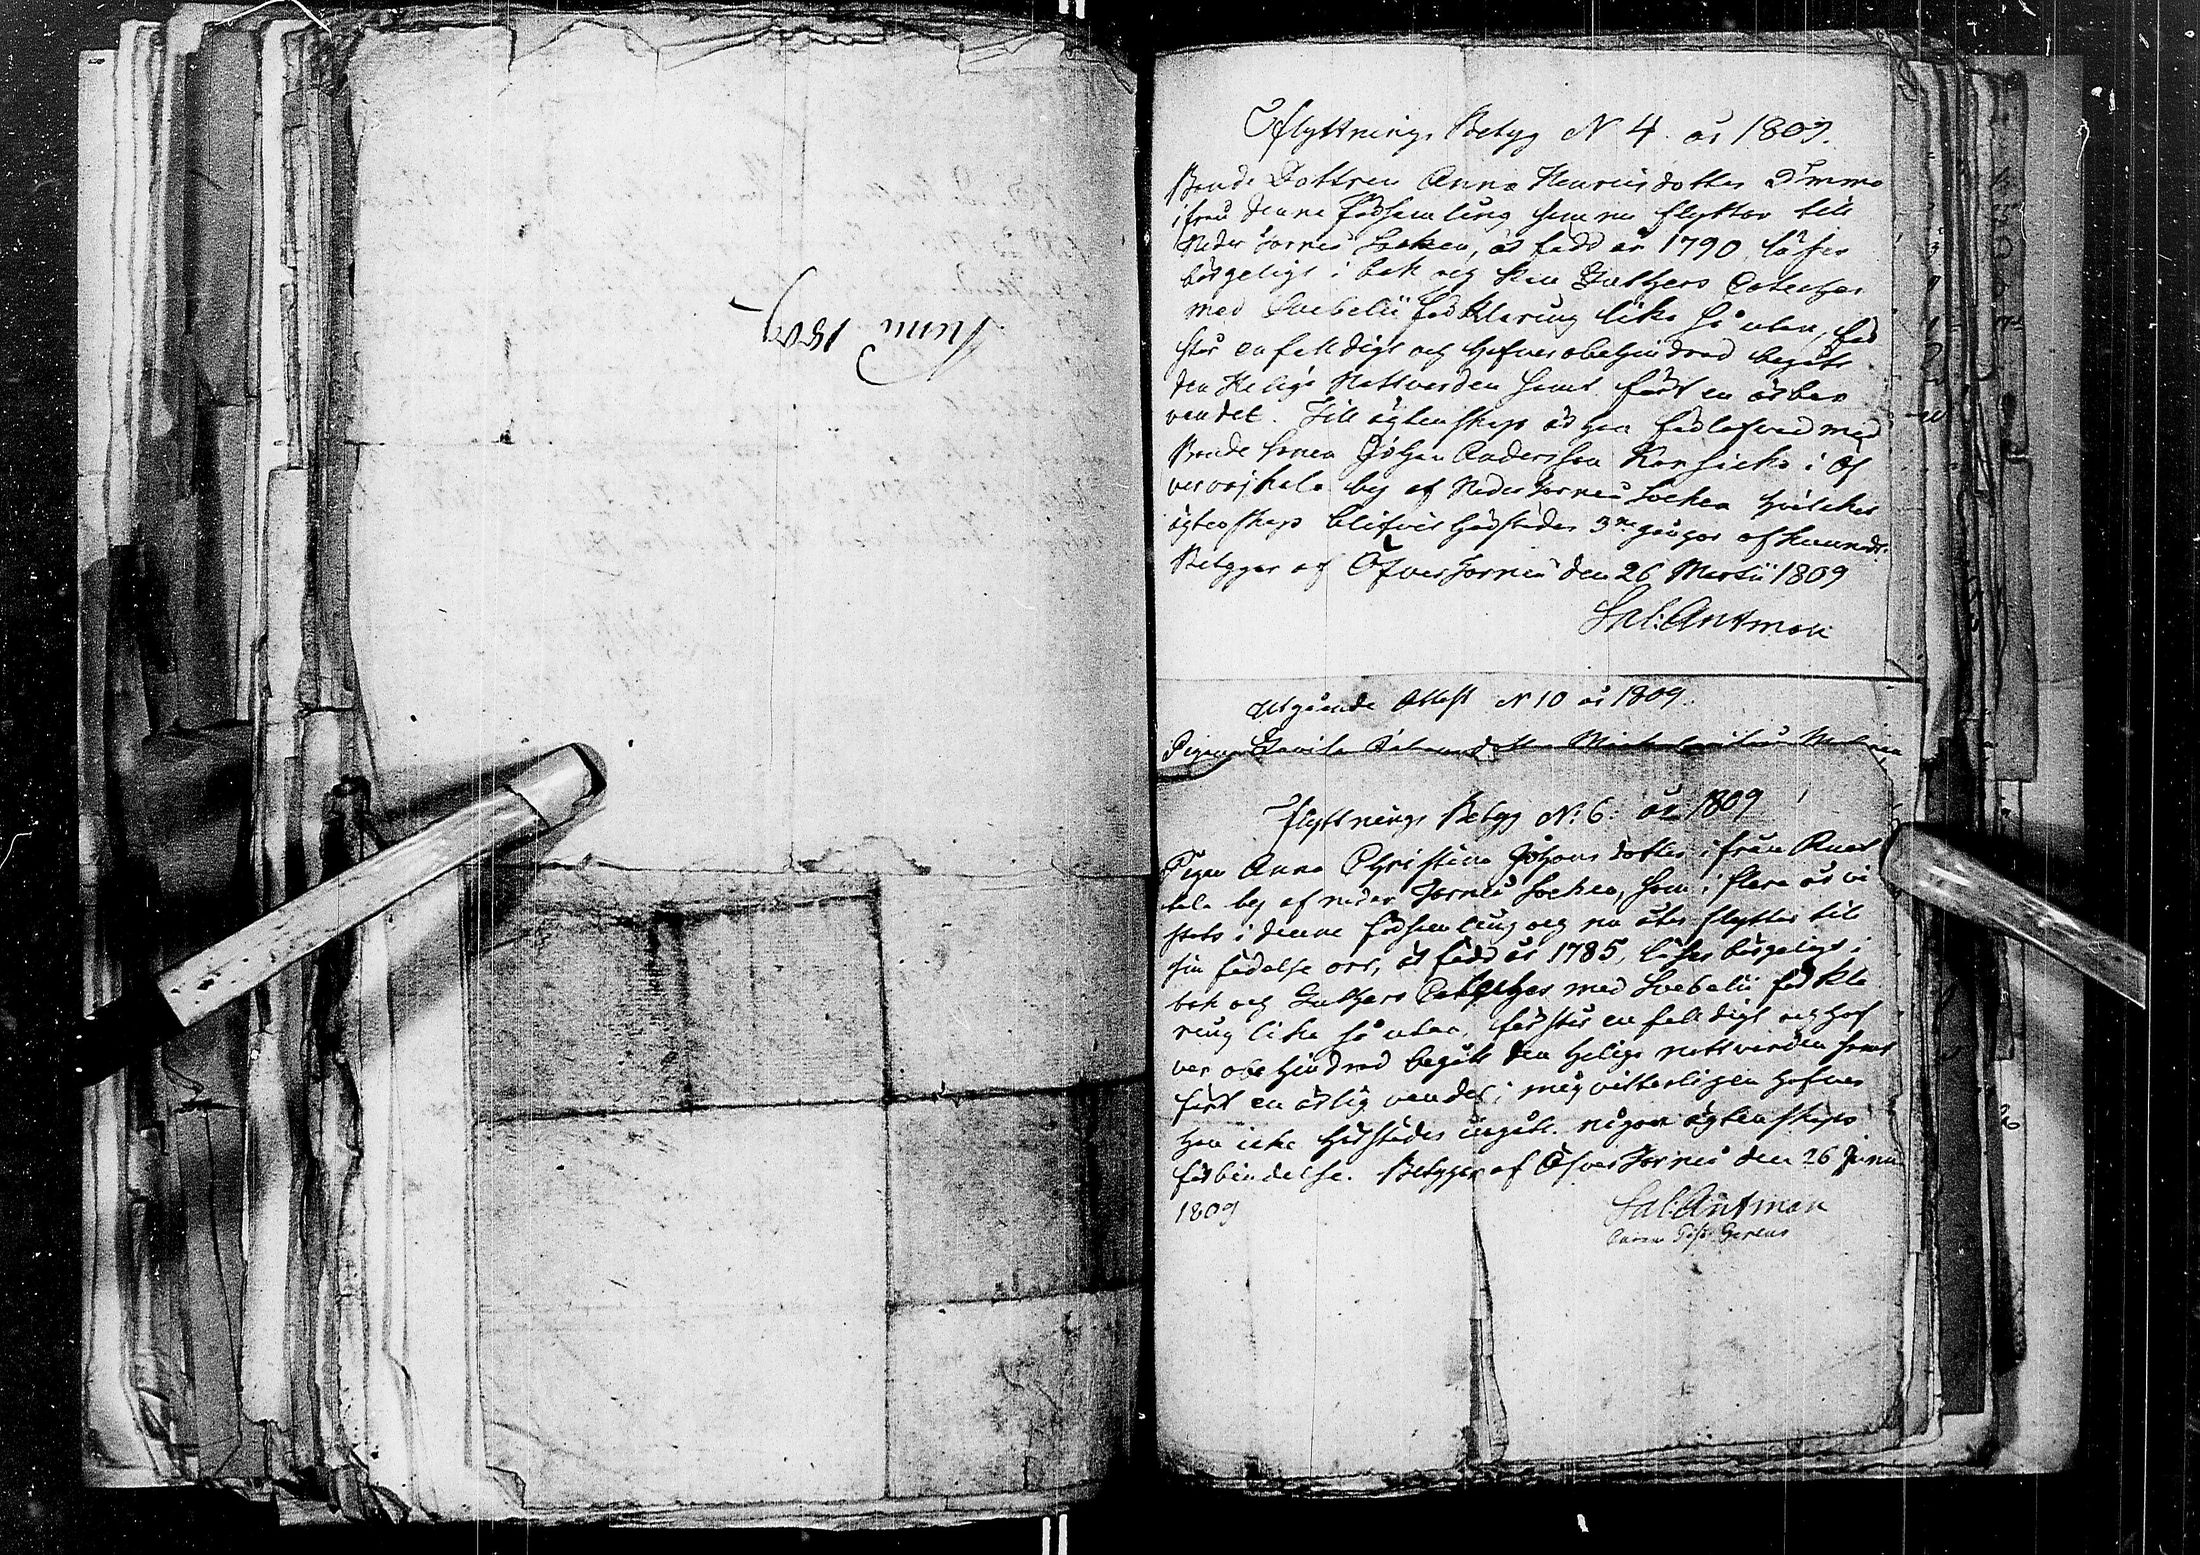 Anno 1809
Flyttnings Betyg N 4. år 1809.
Bonde Dottren Anna Henricsdotter
ifrån denna församling som nu flyttar till
Neder Torneå Socken, är född år 1790, läser
börgeligt i bok og kan Luthers Cateches
med Svebelii förklaring lika så utan, för
står enfalldigt og hafver obehindrad begått
den Heliga Nattvarden samt fört en ärbar
vandel. Till ägtenskap är hon förlofvad med
Bonde Sonen Johan Andersson i Öf
vervojkala by af Neder Torneå Socken hvilcket
ägtenskap blifvit härstädes 3ne gångor afkunnadt.
Betyger af Öfver Torneå den 26 Martii 1809
Sal: Antman
Utgående Attest N 10 år 1809.
Pigan
Flyttnings Betyg N: 6: år 1809
Pigan Anna Christina Johans dotter ifrån
kala by af neder Torneå Socken, som i flera år vi
stats i denna församling og nu åter flyttar till
sin födelse ort, är född år 1785, läser börgeligt i
bok og Luthers Cateches med Svebelii förkla
ring lika så utan, förstår enfalldigt og haf
ver obehindrad begått den heliga nattvarden samt
fört en ärlig vandel; mig vitterligen hafver
hon icke härstädes ingått någon ägtenskaps
förbindelse. Betyger af Öfver Torneå den 26 Junii
1809
Sal: Antman